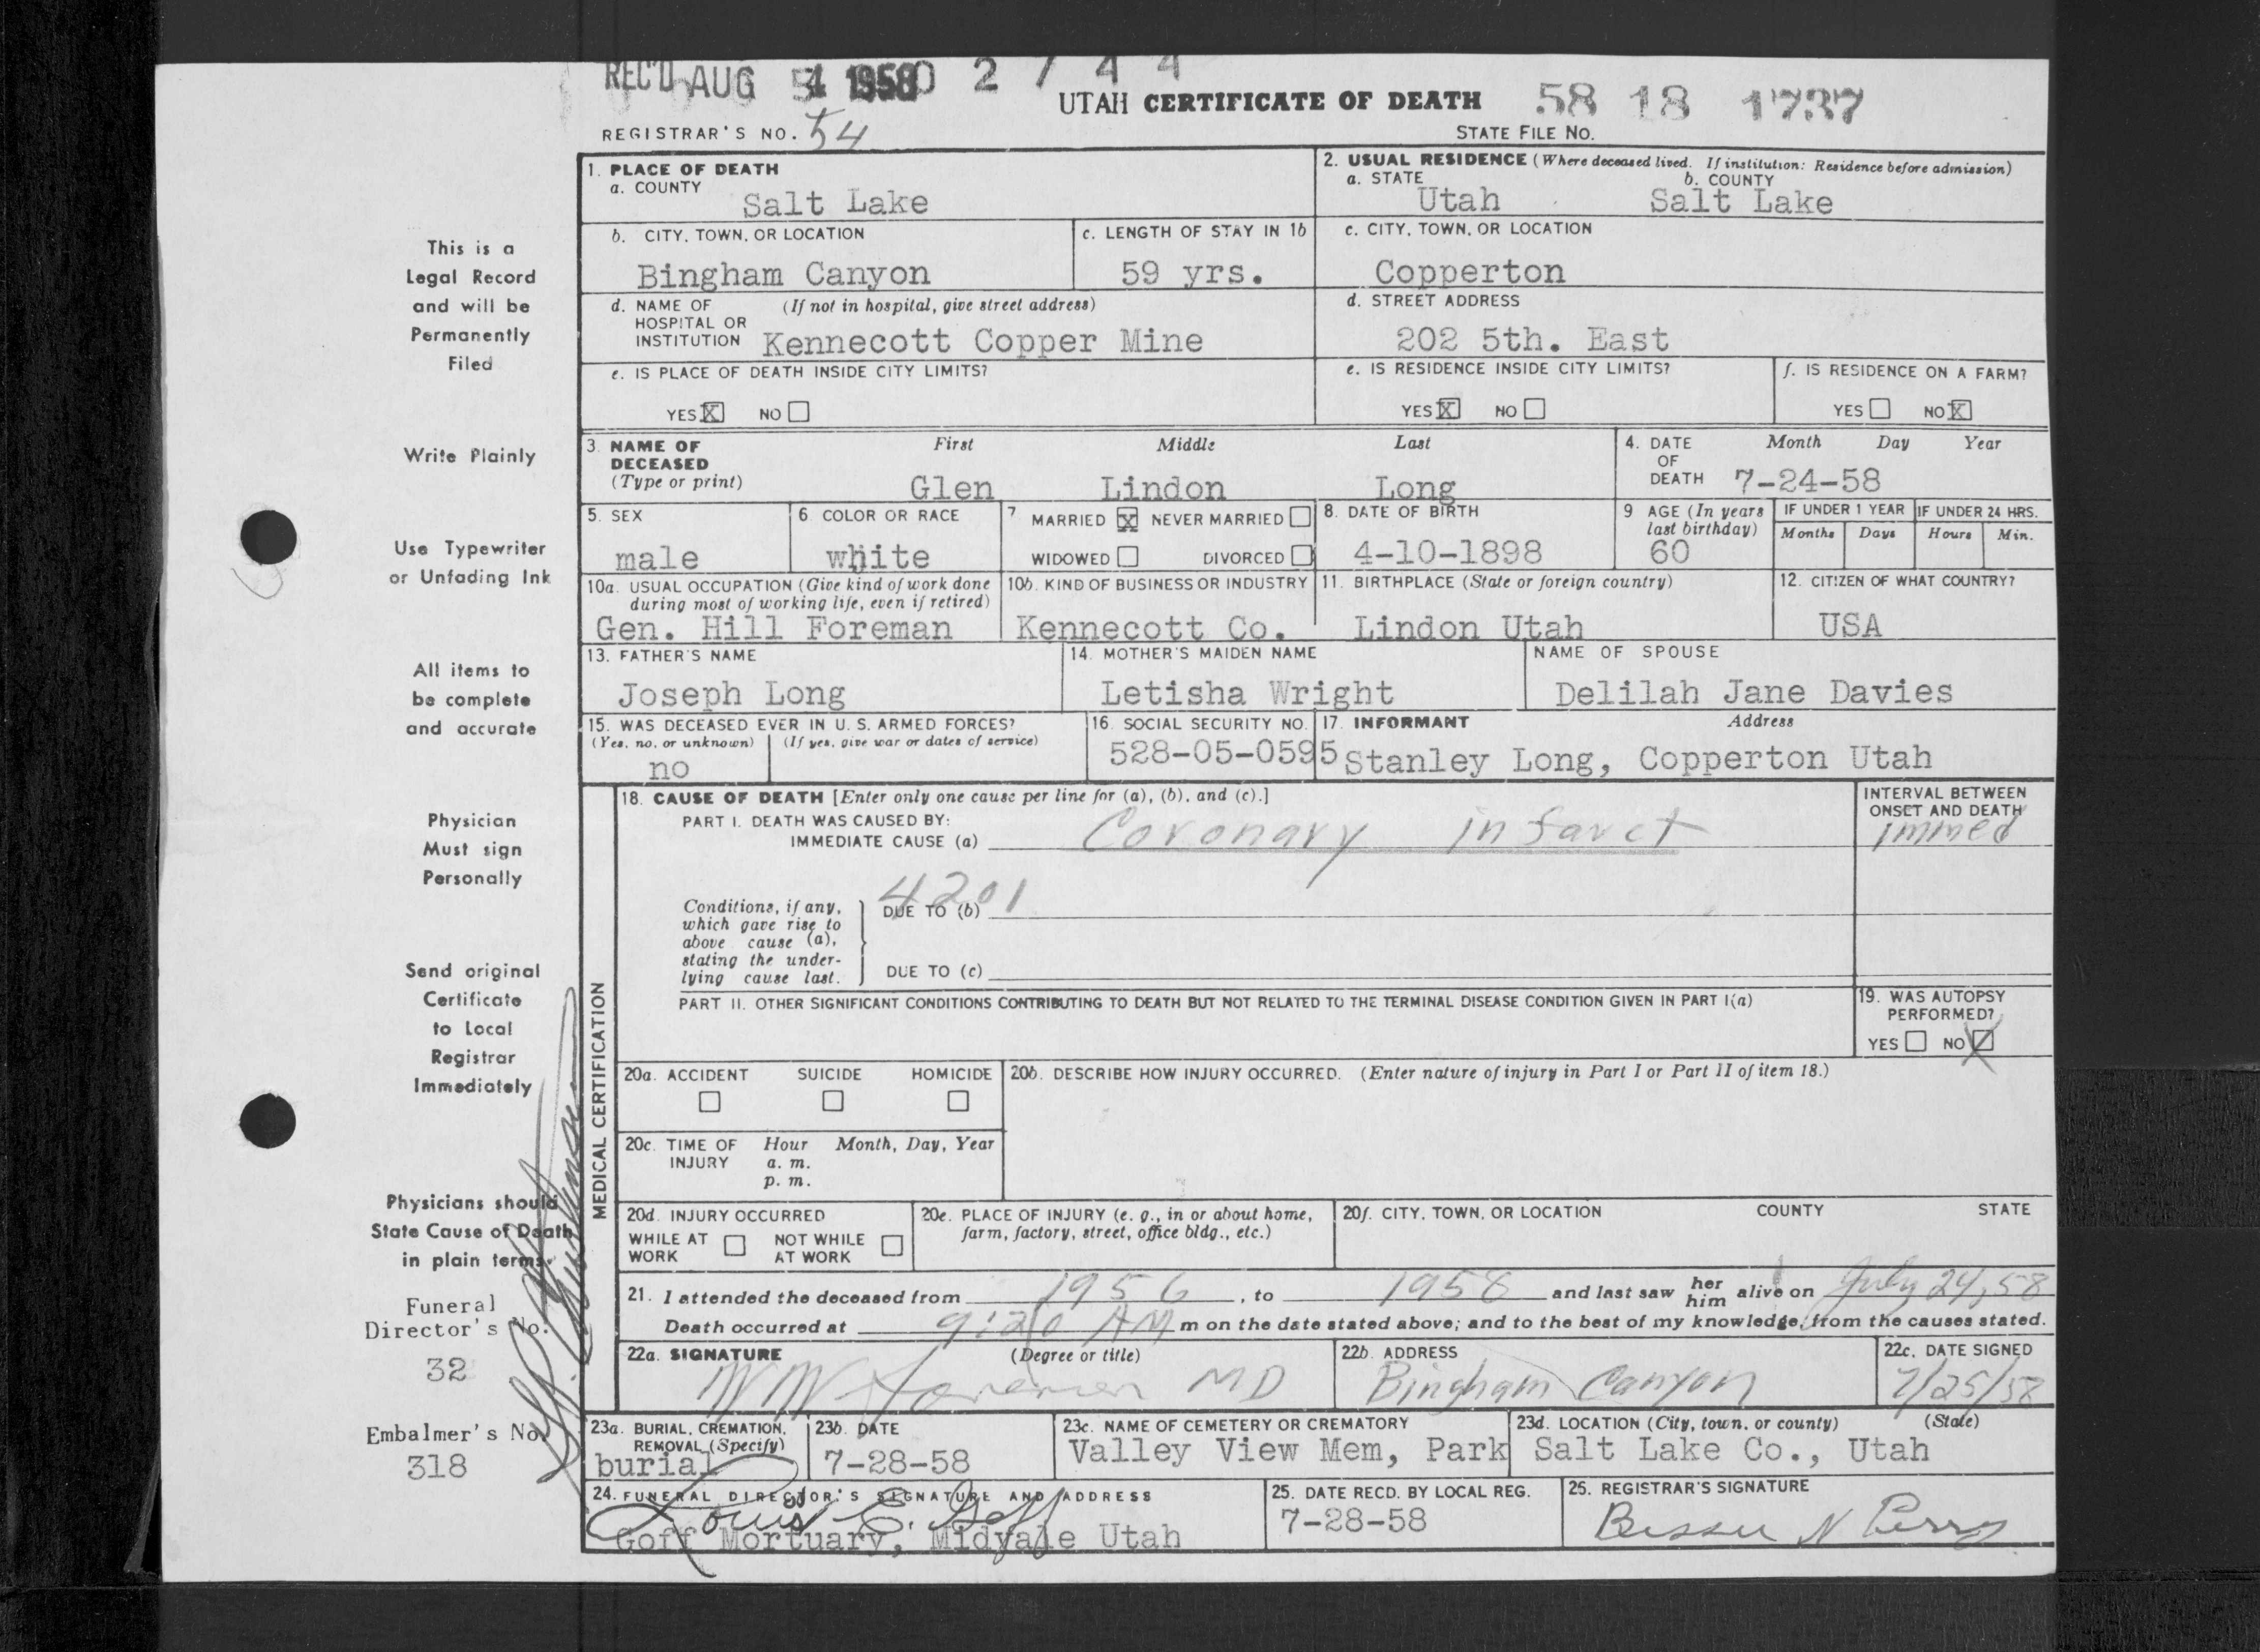 REC'D AUG 4 1958 0 2 7 4 4
UTAH CERTIFICATE OF DEATH 58 18 1737
REGISTRAR'S NO. 54 STATE FILE NO.
1. PLACE OF DEATH
a. COUNTY
Salt Lake
2. USUAL RESIDENCE (Where deceased lived. If institution: Residence before admission)
a. STATE b. COUNTY
Utah Salt Lake
b. CITY, TOWN, OR LOCATION
Bingham Canyon
c. LENGTH OF STAY IN 1b
59 yrs.
c. CITY, TOWN, OR LOCATION
Copperton
d. NAME OF (If not in hospital, give street address)
HOSPITAL OR
INSTITUTION Kennecott Copper Mine
d. STREET ADDRESS
202 5th. East
e. IS PLACE OF DEATH INSIDE CITY LIMITS?
YES X NO
e. IS RESIDENCE INSIDE CITY LIMITS?
YES X NO
f. IS RESIDENCE ON A FARM?
YES NO X
3. NAME OF DECEASED (Type or print)
First Middle Last
Glen Lindon Long
4. DATE OF DEATH Month Day Year
7-24-58
5. SEX
male
6 COLOR OR RACE
white
7 MARRIED X NEVER MARRIED
WIDOWED DIVORCED
8. DATE OF BIRTH
4-10-1898
9 AGE (In years last birthday)
60
IF UNDER 1 YEAR IF UNDER 24 HRS.
Months Days Hours Min.
10a. USUAL OCCUPATION (Give kind of work done
during most of working life, even if retired)
Gen. Hill Foreman
10b. KIND OF BUSINESS OR INDUSTRY
Kennecott Co.
11. BIRTHPLACE (State or foreign country)
Lindon Utah
12. CITIZEN OF WHAT COUNTRY?
USA
13. FATHER'S NAME
Joseph Long
14. MOTHER'S MAIDEN NAME
Letisha Wright
NAME OF SPOUSE
Delilah Jane Davies
15. WAS DECEASED EVER IN U. S. ARMED FORCES?
(Yes, no, or unknown) (If yes, give war or dates of service)
no
16. SOCIAL SECURITY NO.
528-05-0595
17. INFORMANT Address
Stanley Long, Copperton Utah
MEDICAL CERTIFICATION
18. CAUSE OF DEATH [Enter only one cause per line for (a), (b), and (c).]
PART I. DEATH WAS CAUSED BY:
IMMEDIATE CAUSE (a) Coronary infarct
INTERVAL BETWEEN
ONSET AND DEATH
immed
4201
Conditions, if any,
which gave rise to
above cause (a),
stating the under-
lying cause last.
DUE TO (b)
DUE TO (c)
PART II. OTHER SIGNIFICANT CONDITIONS CONTRIBUTING TO DEATH BUT NOT RELATED TO THE TERMINAL DISEASE CONDITION GIVEN IN PART I(a)
19. WAS AUTOPSY
PERFORMED?
YES NO X
20a. ACCIDENT SUICIDE HOMICIDE
20b. DESCRIBE HOW INJURY OCCURRED. (Enter nature of injury in Part I or Part II of item 18.)
20c. TIME OF INJURY Hour Month, Day, Year
a. m.
p. m.
20d. INJURY OCCURRED
WHILE AT WORK NOT WHILE AT WORK
20e. PLACE OF INJURY (e. g., in or about home,
farm, factory, street, office bldg., etc.)
20f. CITY, TOWN, OR LOCATION COUNTY STATE
21. I attended the deceased from 1956, to 1958 and last saw her him alive on July 24, 58
Death occurred at 9:20 AM m on the date stated above; and to the best of my knowledge, from the causes stated.
22a. SIGNATURE (Degree or title)
MD
22b. ADDRESS
Bingham Canyon
22c. DATE SIGNED
7/25/58
23a. BURIAL, CREMATION,
REMOVAL (Specify)
burial
23b. DATE
7-28-58
23c. NAME OF CEMETERY OR CREMATORY
Valley View Mem, Park
23d. LOCATION (City, town, or county) (State)
Salt Lake Co., Utah
24. FUNERAL DIRECTOR'S SIGNATURE AND ADDRESS
Louis E. Goff
Goff Mortuary, Midvale Utah
25. DATE RECD. BY LOCAL REG.
7-28-58
26. REGISTRAR'S SIGNATURE
Bessie N Perry
This is a
Legal Record
and will be
Permanently
Filed
Write Plainly
Use Typewriter
or Unfading Ink
All items to
be complete
and accurate
Physician
Must sign
Personally
Send original
Certificate
to Local
Registrar
Immediately
Physicians should
State Cause of Death
in plain terms.
Funeral
Director's No.
32
Embalmer's No.
318